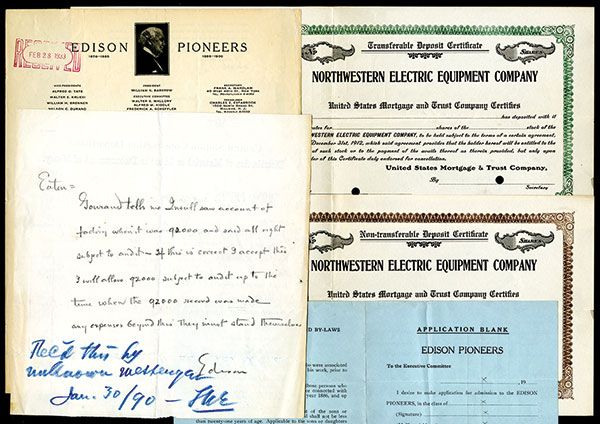 RECEIVED
FEB 28 1933
EDISON PIONEERS
VICE PRESIDENTS
ALFRED O. TATE
WALTER S. KRUESI
WILLIAM H. BRENNER
NELSON C. DURAND
PRESIDENT
WILLIAM S. BARSTOW
EXECUTIVE COMMITTEE
WALTER S. MALLORY
ALFRED W. KIDDLE
FREDERICK A. SCHEFFLER
FRANK A. WARDLAW
Eaton =
Gourand tells me Insull saw account of
factory wherein it was 92000 and said all right
subject to audit — If this is correct I accept this
I will allow 92000 subject to audit up to the
time when the 92000 record was made
any expenses beyond this they must stand themselves
Edison
Rec'd this by
unknown messenger
Jan. 30/90 — SBE
Transferable Deposit Certificate
SHARES
NORTHWESTERN ELECTRIC EQUIPMENT COMPANY
United States Mortgage and Trust Company Certifies
has deposited with it
shares of the stock of the
WESTERN ELECTRIC EQUIPMENT COMPANY, to be held subject to the terms of a certain agreement,
December 31st, 1912, which said agreement provides that the holder hereof will be entitled to the
of such stock or to the payment of the avails thereof as therein provided, but only upon
of this Certificate duly endorsed for cancellation.
United States Mortgage & Trust Company,
By
Secretary
Non-transferable Deposit Certificate
SHARES
NORTHWESTERN ELECTRIC EQUIPMENT COMPANY
United States Mortgage and Trust Company Certifies
BY-LAWS
who were associated
his work, prior to
those persons who
were connected with
year 1886, and up
of the sons or
shall not be less
than twenty-one years of age. Applicable to the sons or daughters
APPLICATION BLANK
EDISON PIONEERS
To the Executive Committee
19
I desire to make application for admission to the EDISON
PIONEERS, in the class of
(Signature)